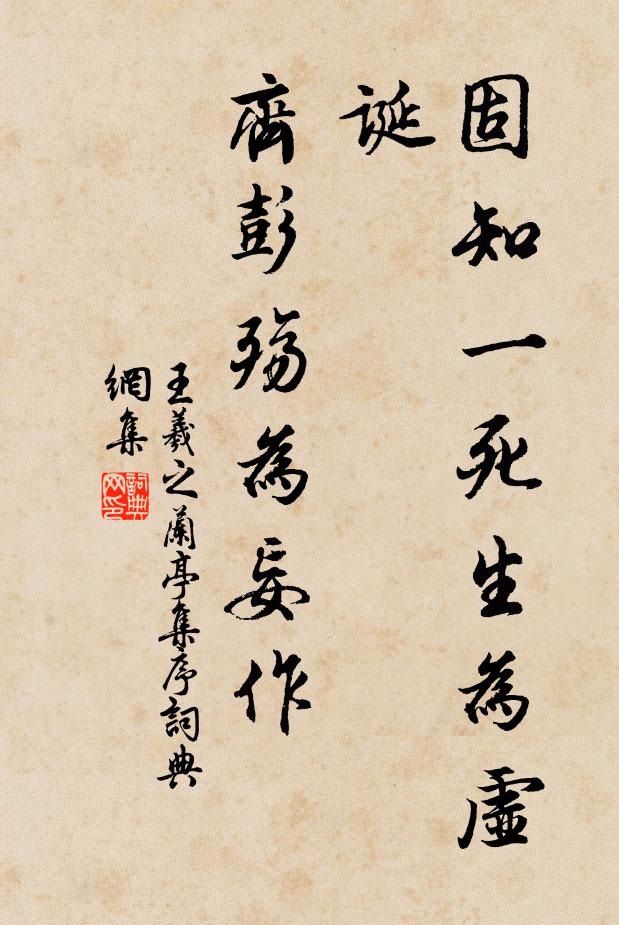 固知一死生為虛
誕
齊彭殤為妄作
王羲之蘭亭集序詞典
網集
詞典
网印